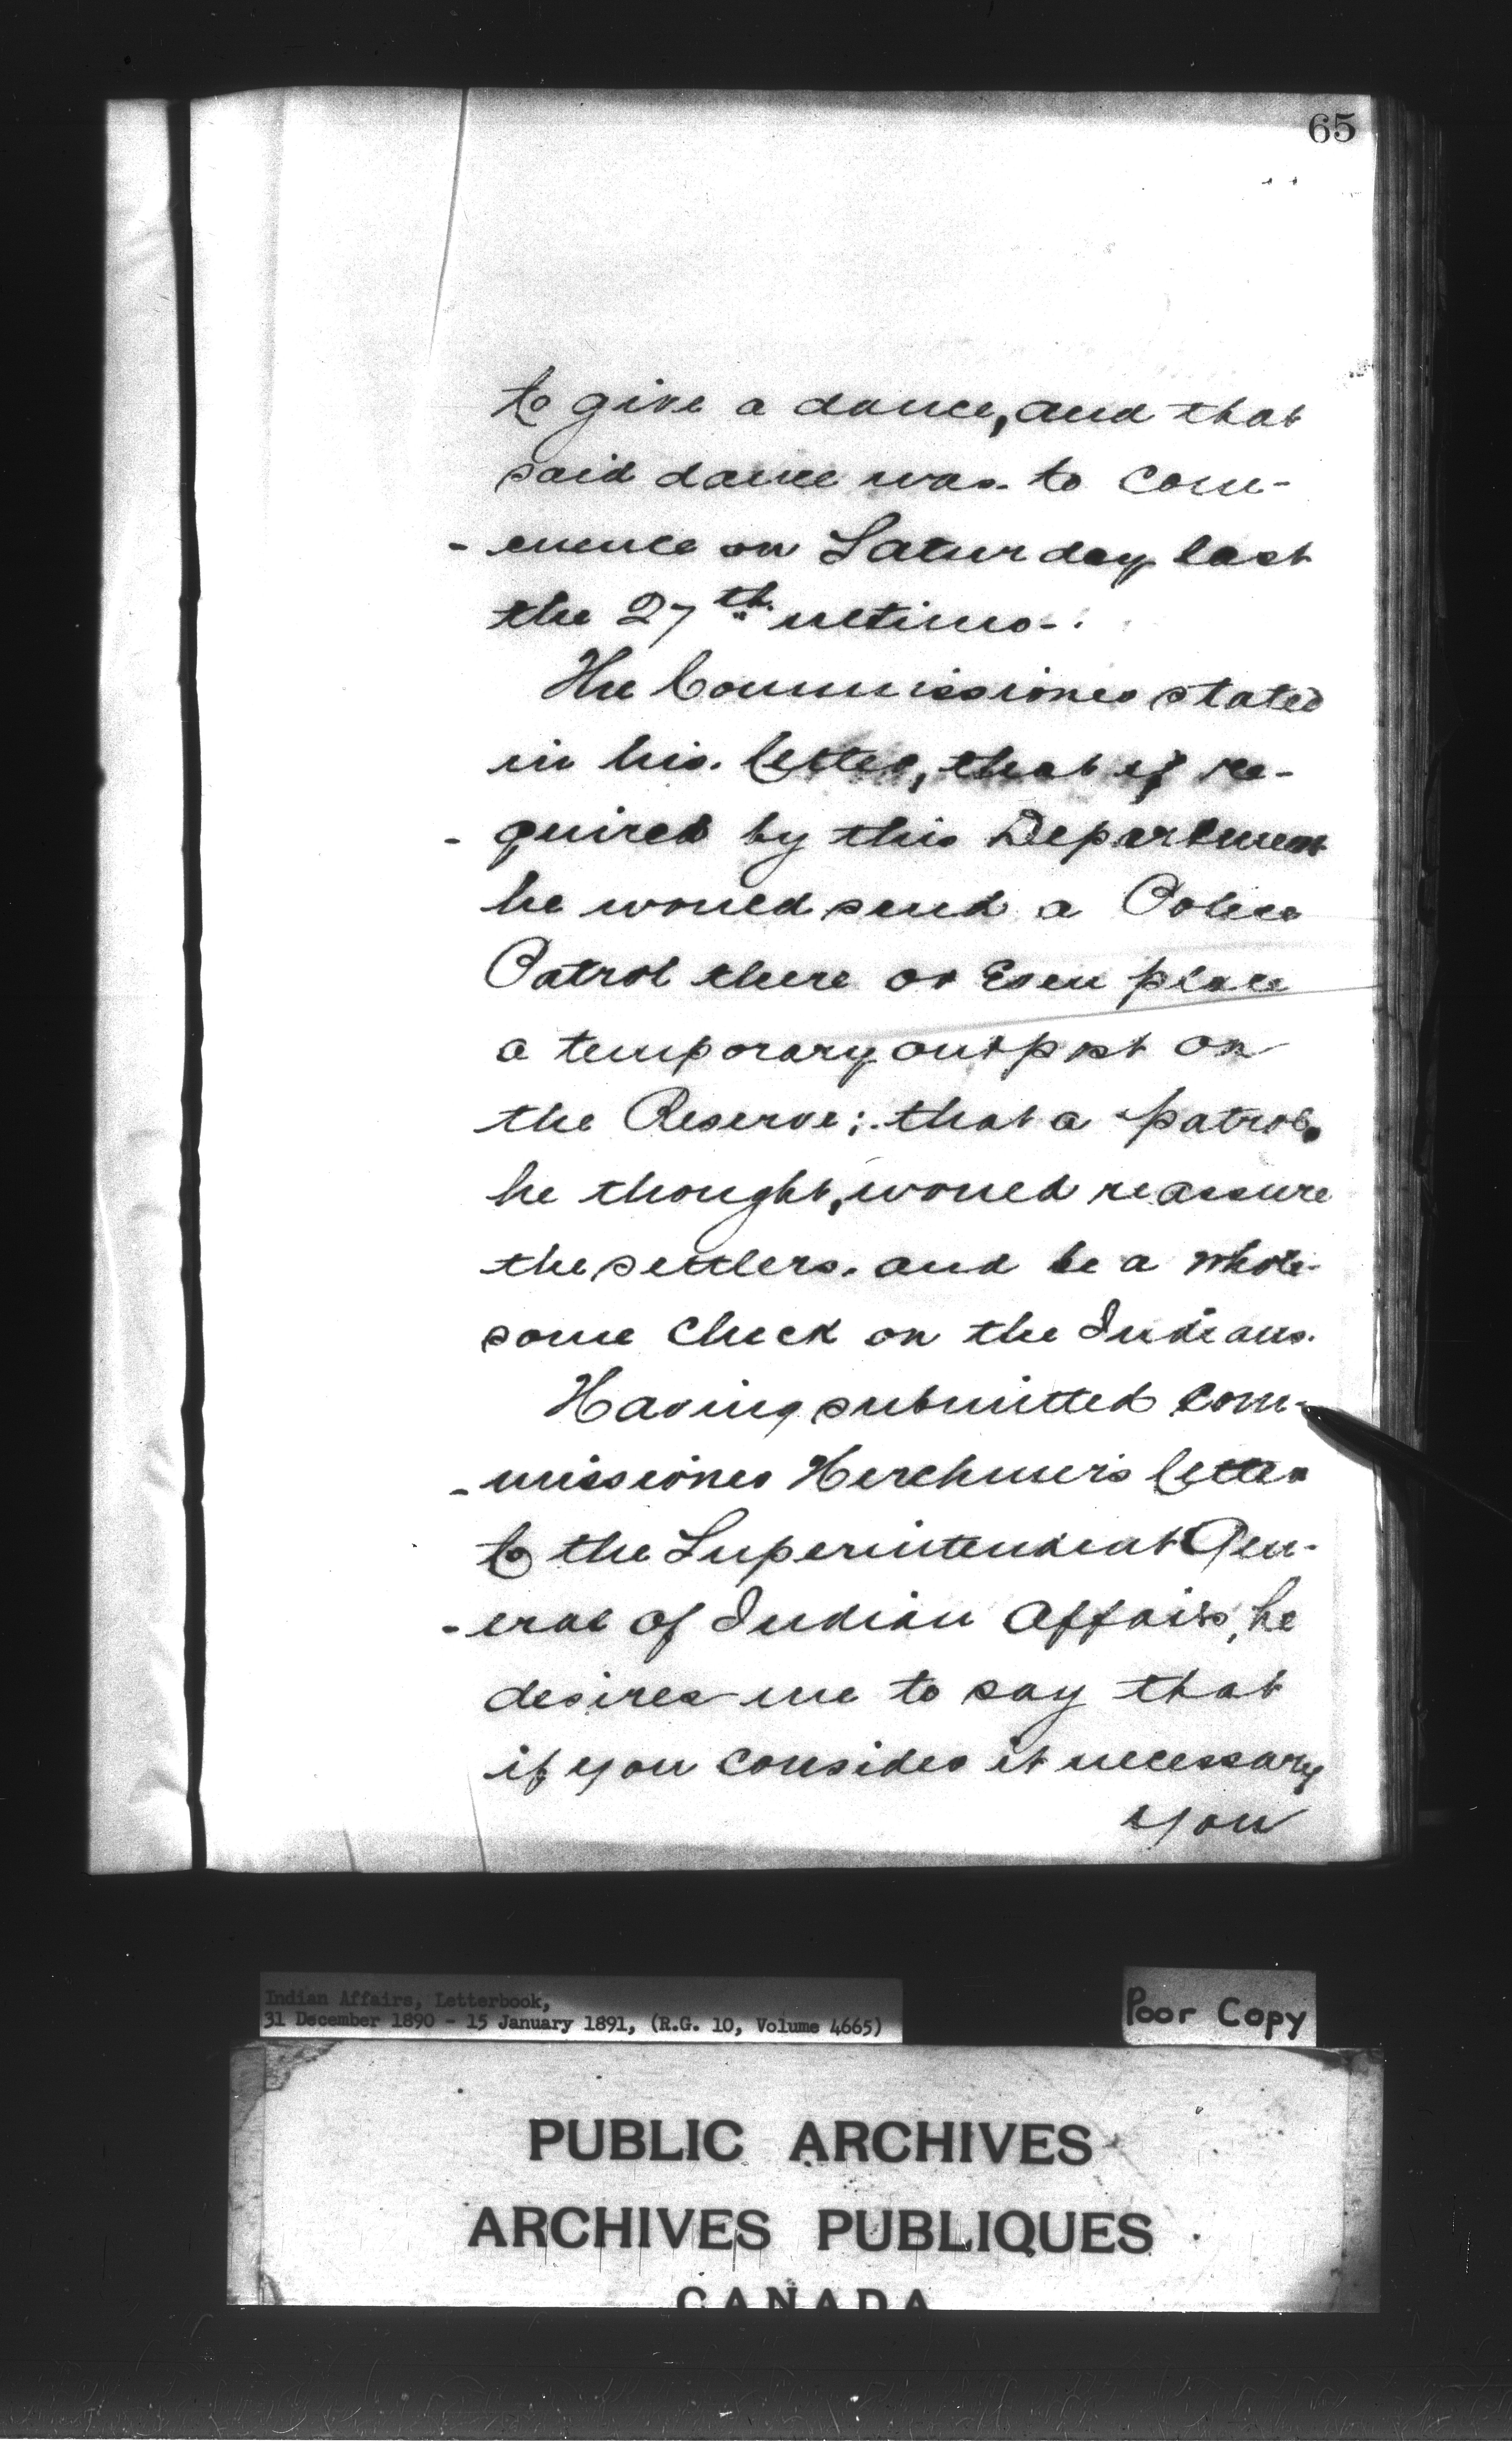 65
to give a dance, and that
said dance was to com-
-mence on Saturday last
the 27th ultimo.
The Commissioner stated
in his letter, that if re-
-quired by this Department
he would send a Police
Patrol there or even place
a temporary outpost on
the Reserve; that a patrol,
he thought, would reassure
the settlers and be a whole-
some check on the Indians.
Having submitted Com-
-missioner Herchmer's letter
to the Superintendent Gen-
-eral of Indian Affairs, he
desires me to say that
if you consider it necessary
you
Indian Affairs, Letterbook,
31 December 1890 - 15 January 1891, (R.G. 10, Volume 4665)
Poor Copy
PUBLIC ARCHIVES
ARCHIVES PUBLIQUES
CANADA